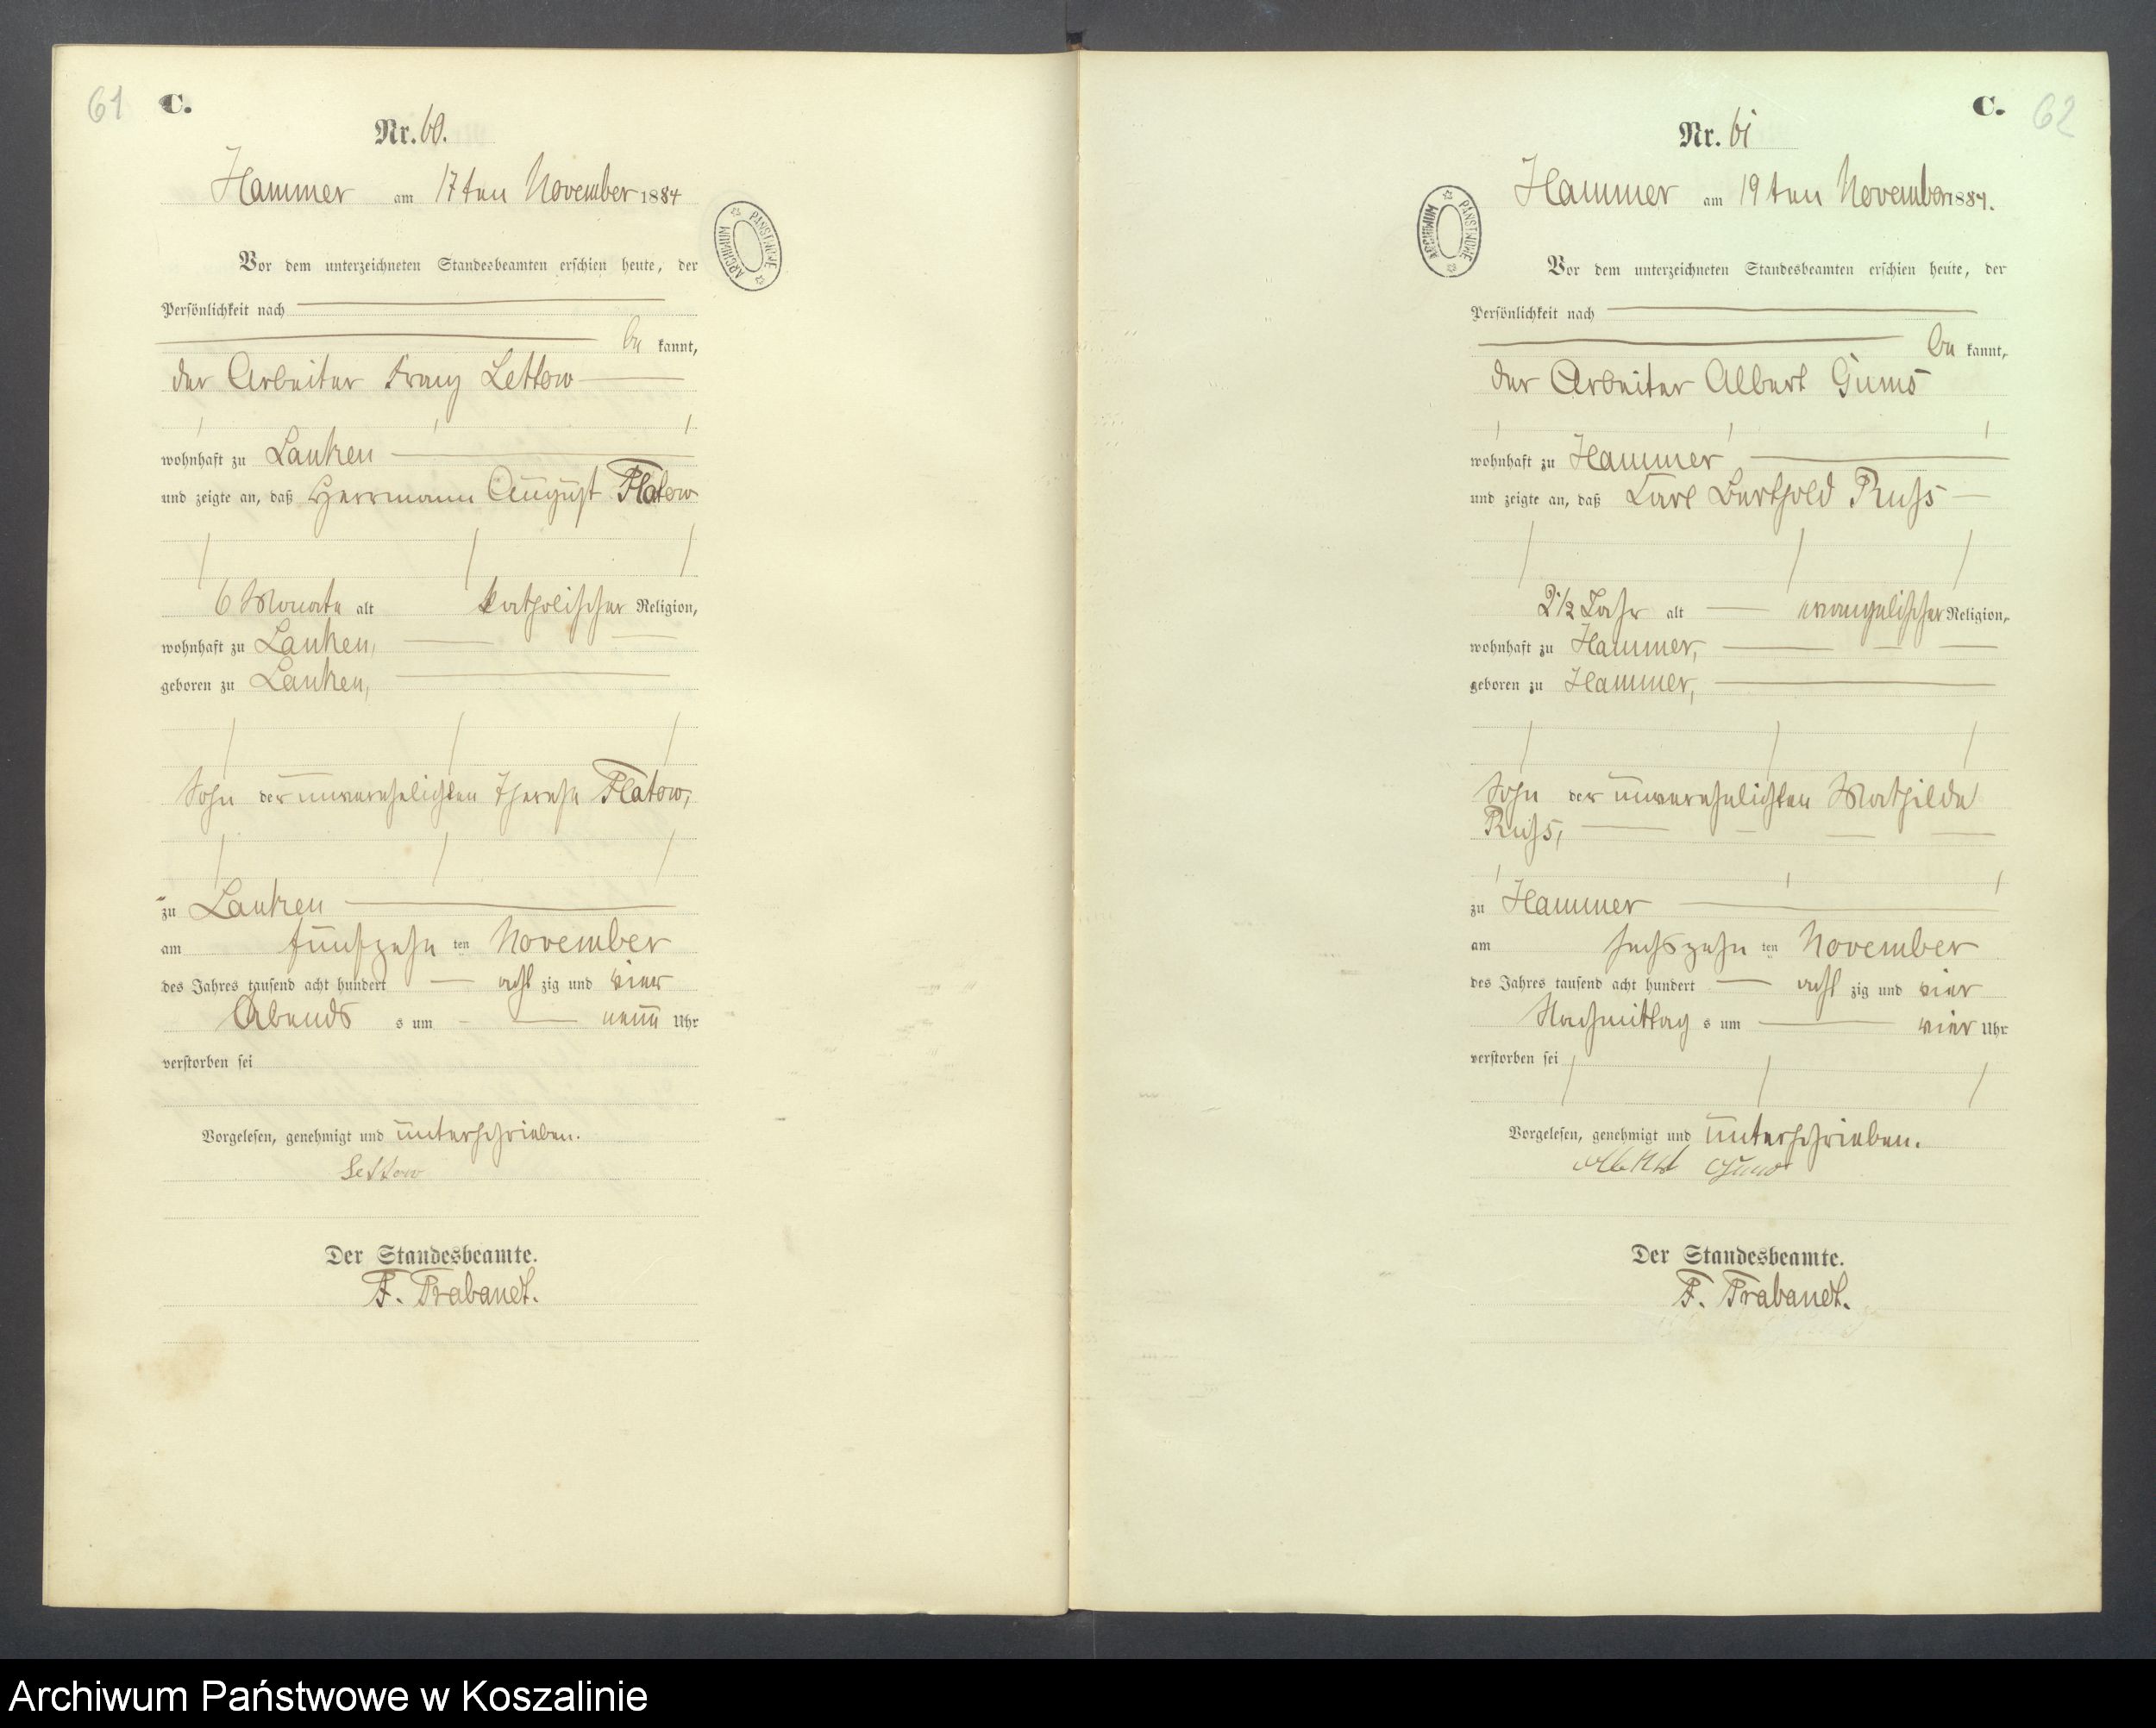 61 C.
Nr. 60.
Hammer am 17ten November 1884
ARCHIWUM PAŃSTWOWE
Vor dem unterzeichneten Standesbeamten erschien heute, der
Persönlichkeit nach
be kannt,
der Arbeiter Franz Lettow
wohnhaft zu Lanken
und zeigte an, daß Herrmann August Flatow
6 Monate alt katholischer Religion,
wohnhaft zu Lanken,
geboren zu Lanken,
Sohn der unverehelichten Therese Flatow,
zu Lanken
am fünfzehn ten November
des Jahres tausend acht hundert acht zig und vier
Abends s um neun Uhr
verstorben sei
Vorgelesen, genehmigt und unterschrieben.
Lettow
Der Standesbeamte.
F. Trabandt.
C. 62
Nr. 61
Hammer am 19ten November 1884.
ARCHIWUM PAŃSTWOWE
Vor dem unterzeichneten Standesbeamten erschien heute, der
Persönlichkeit nach
be kannt,
der Arbeiter Albert Gums
wohnhaft zu Hammer
und zeigte an, daß Carl Berthold Russ
2 1/2 Jahr alt evangelischer Religion,
wohnhaft zu Hammer,
geboren zu Hammer,
Sohn der unverehelichten Mathilde
Russ,
zu Hammer
am sechszehn ten November
des Jahres tausend acht hundert acht zig und vier
Nachmittag s um vier Uhr
verstorben sei
Vorgelesen, genehmigt und unterschrieben.
Albert Gums
Der Standesbeamte.
F. Trabandt.
Archiwum Państwowe w Koszalinie